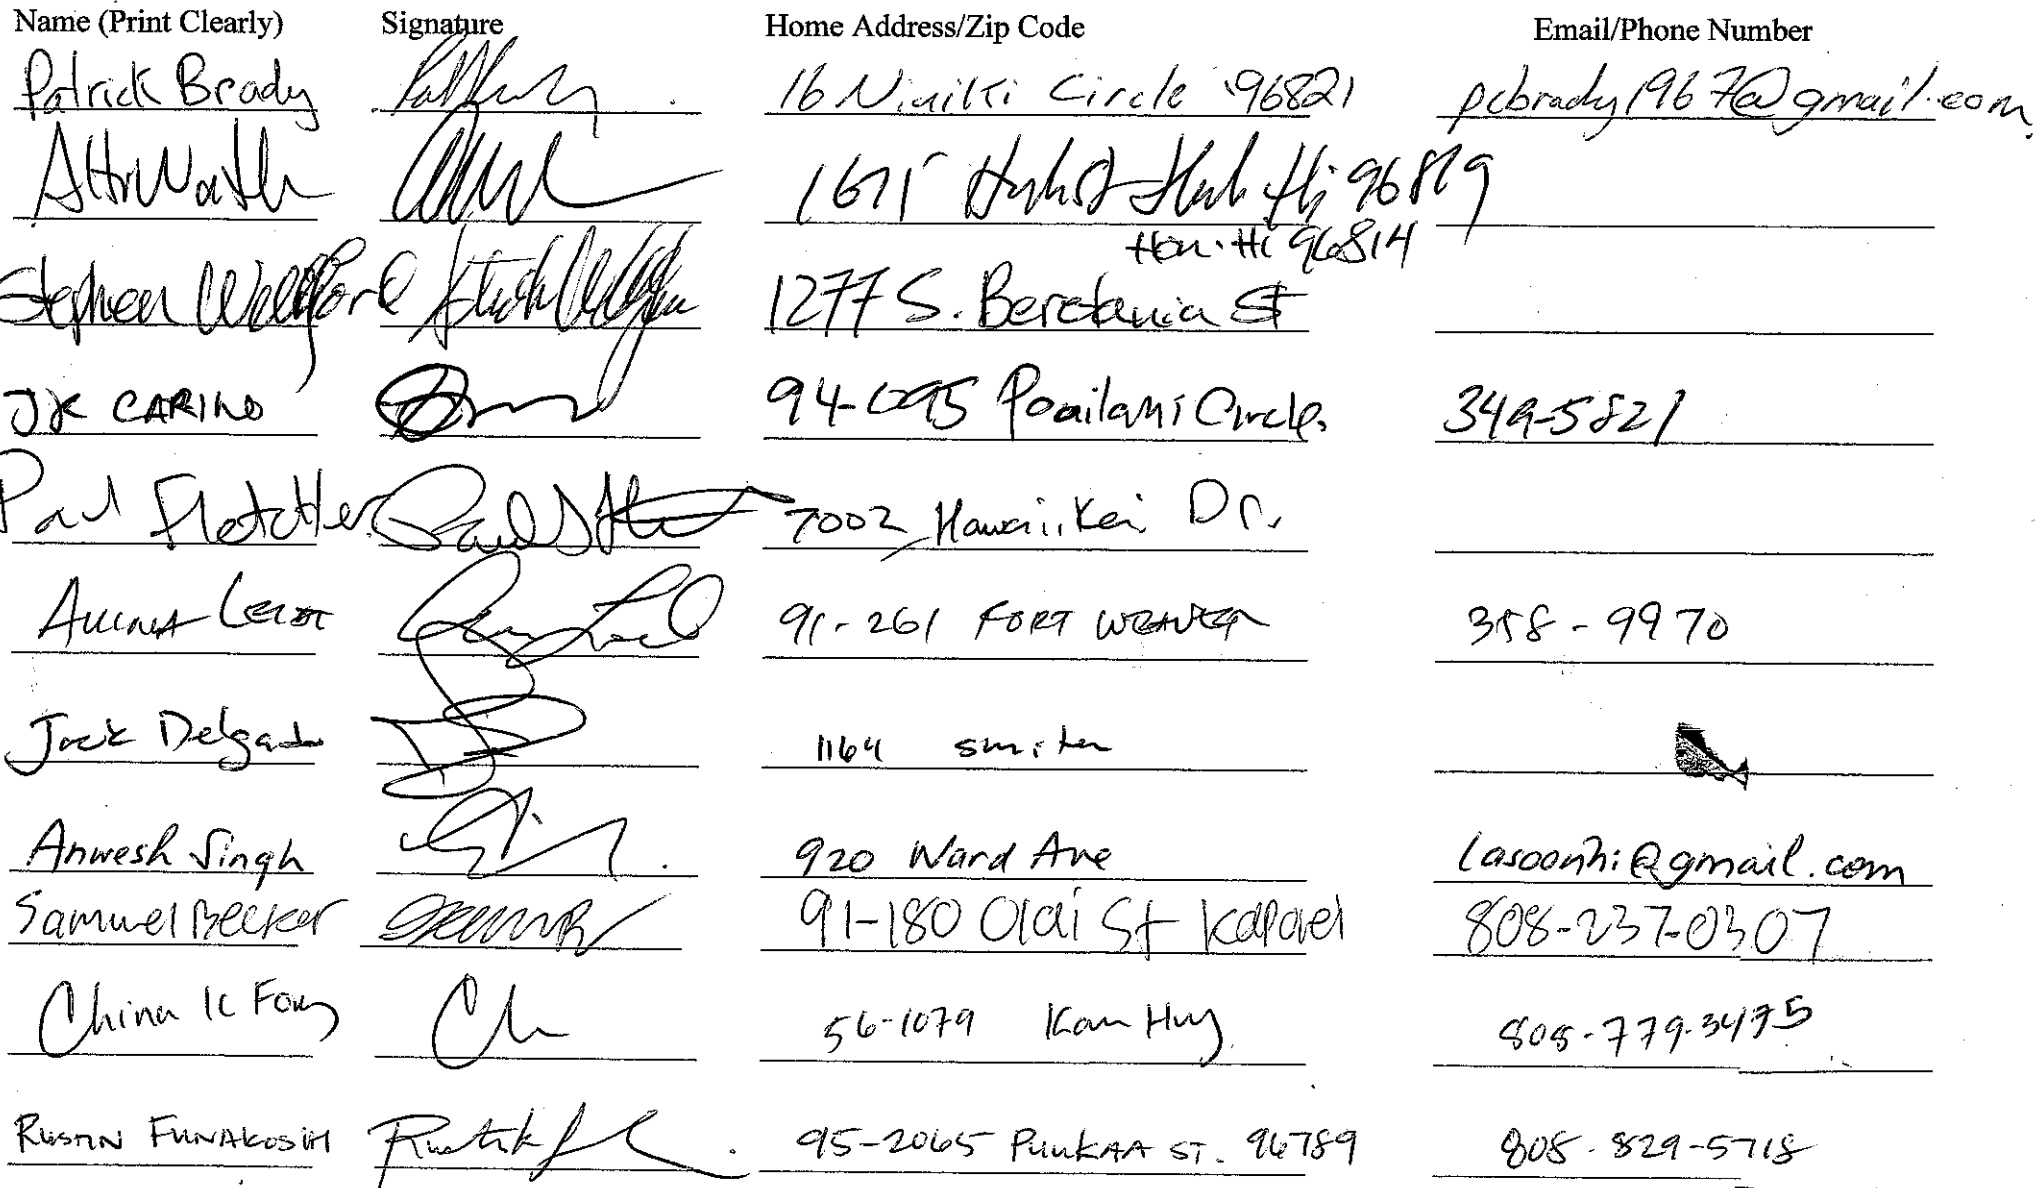 Name (Print Clearly) Signature Home Address/Zip Code Email/Phone Number
Patrick Brady 16 Niuiki Circle 96821 pcbrady1967@gmail.com
1675 96819
Hon. Hi 96814
Stephen Wellford 1277 S. Beretania St
JK CARINO 94-095 Poailani Circle. 349-5821
Paul Fletcher 7002 Hawaii Kai Dr.
91-261 FORT WEAVER 358-9970
Jack Delgado 1164 smith
Anwesh Singh 920 Ward Ave lasoonhi@gmail.com
Samuel Becker 91-180 Olai St Kapolei 808-237-0307
China K Fong 56-1079 Kam Hwy 808-779-3475
RUSTIN FUNAKOSHI 95-2065 PUUKAA ST. 96789 808-829-5718